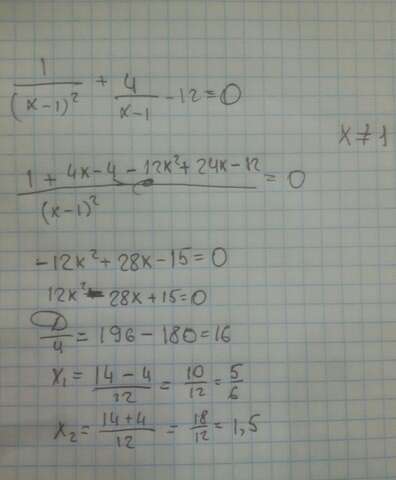 1/(x-1)² + 4/(x-1) - 12 = 0
x ≠ 1
(1 + 4x - 4 - 12x² + 24x - 12)/(x-1)² = 0
-12x² + 28x - 15 = 0
12x² - 28x + 15 = 0
D/4 = 196 - 180 = 16
x₁ = (14 - 4)/12 = 10/12 = 5/6
x₂ = (14 + 4)/12 = 18/12 = 1,5